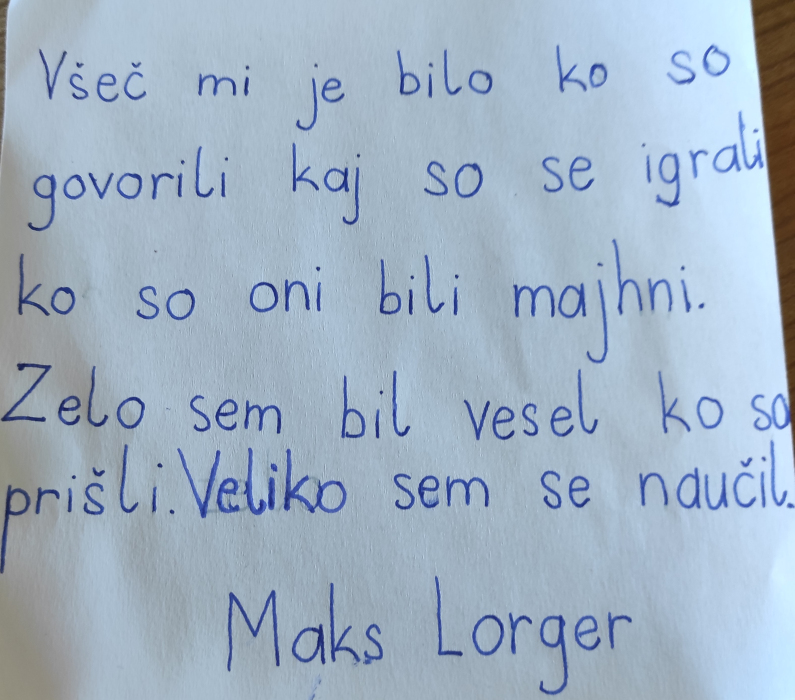 Všeč mi je bilo ko so
govorili kaj so se igrali
ko so oni bili majhni.
Zelo sem bil vesel ko so
prišli. Veliko sem se naučil.
Maks Lorger